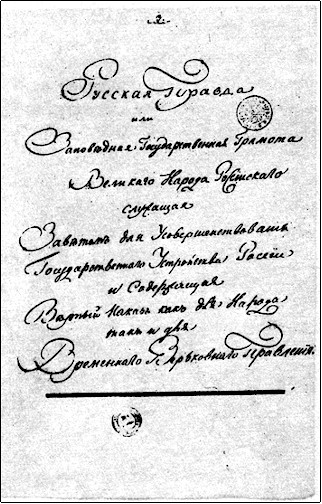 2.
Русская Правда
или
Заповѣдная Государственная Грамота
Великаго Народа Россiйскаго
служащая
Завѣтомъ для Усовершенствованiя
Государственнаго Устройства Россiи
и Содержащая
Вѣрный Наказъ какъ для Народа
такъ и для
Временнаго Верьховнаго Правленiя.